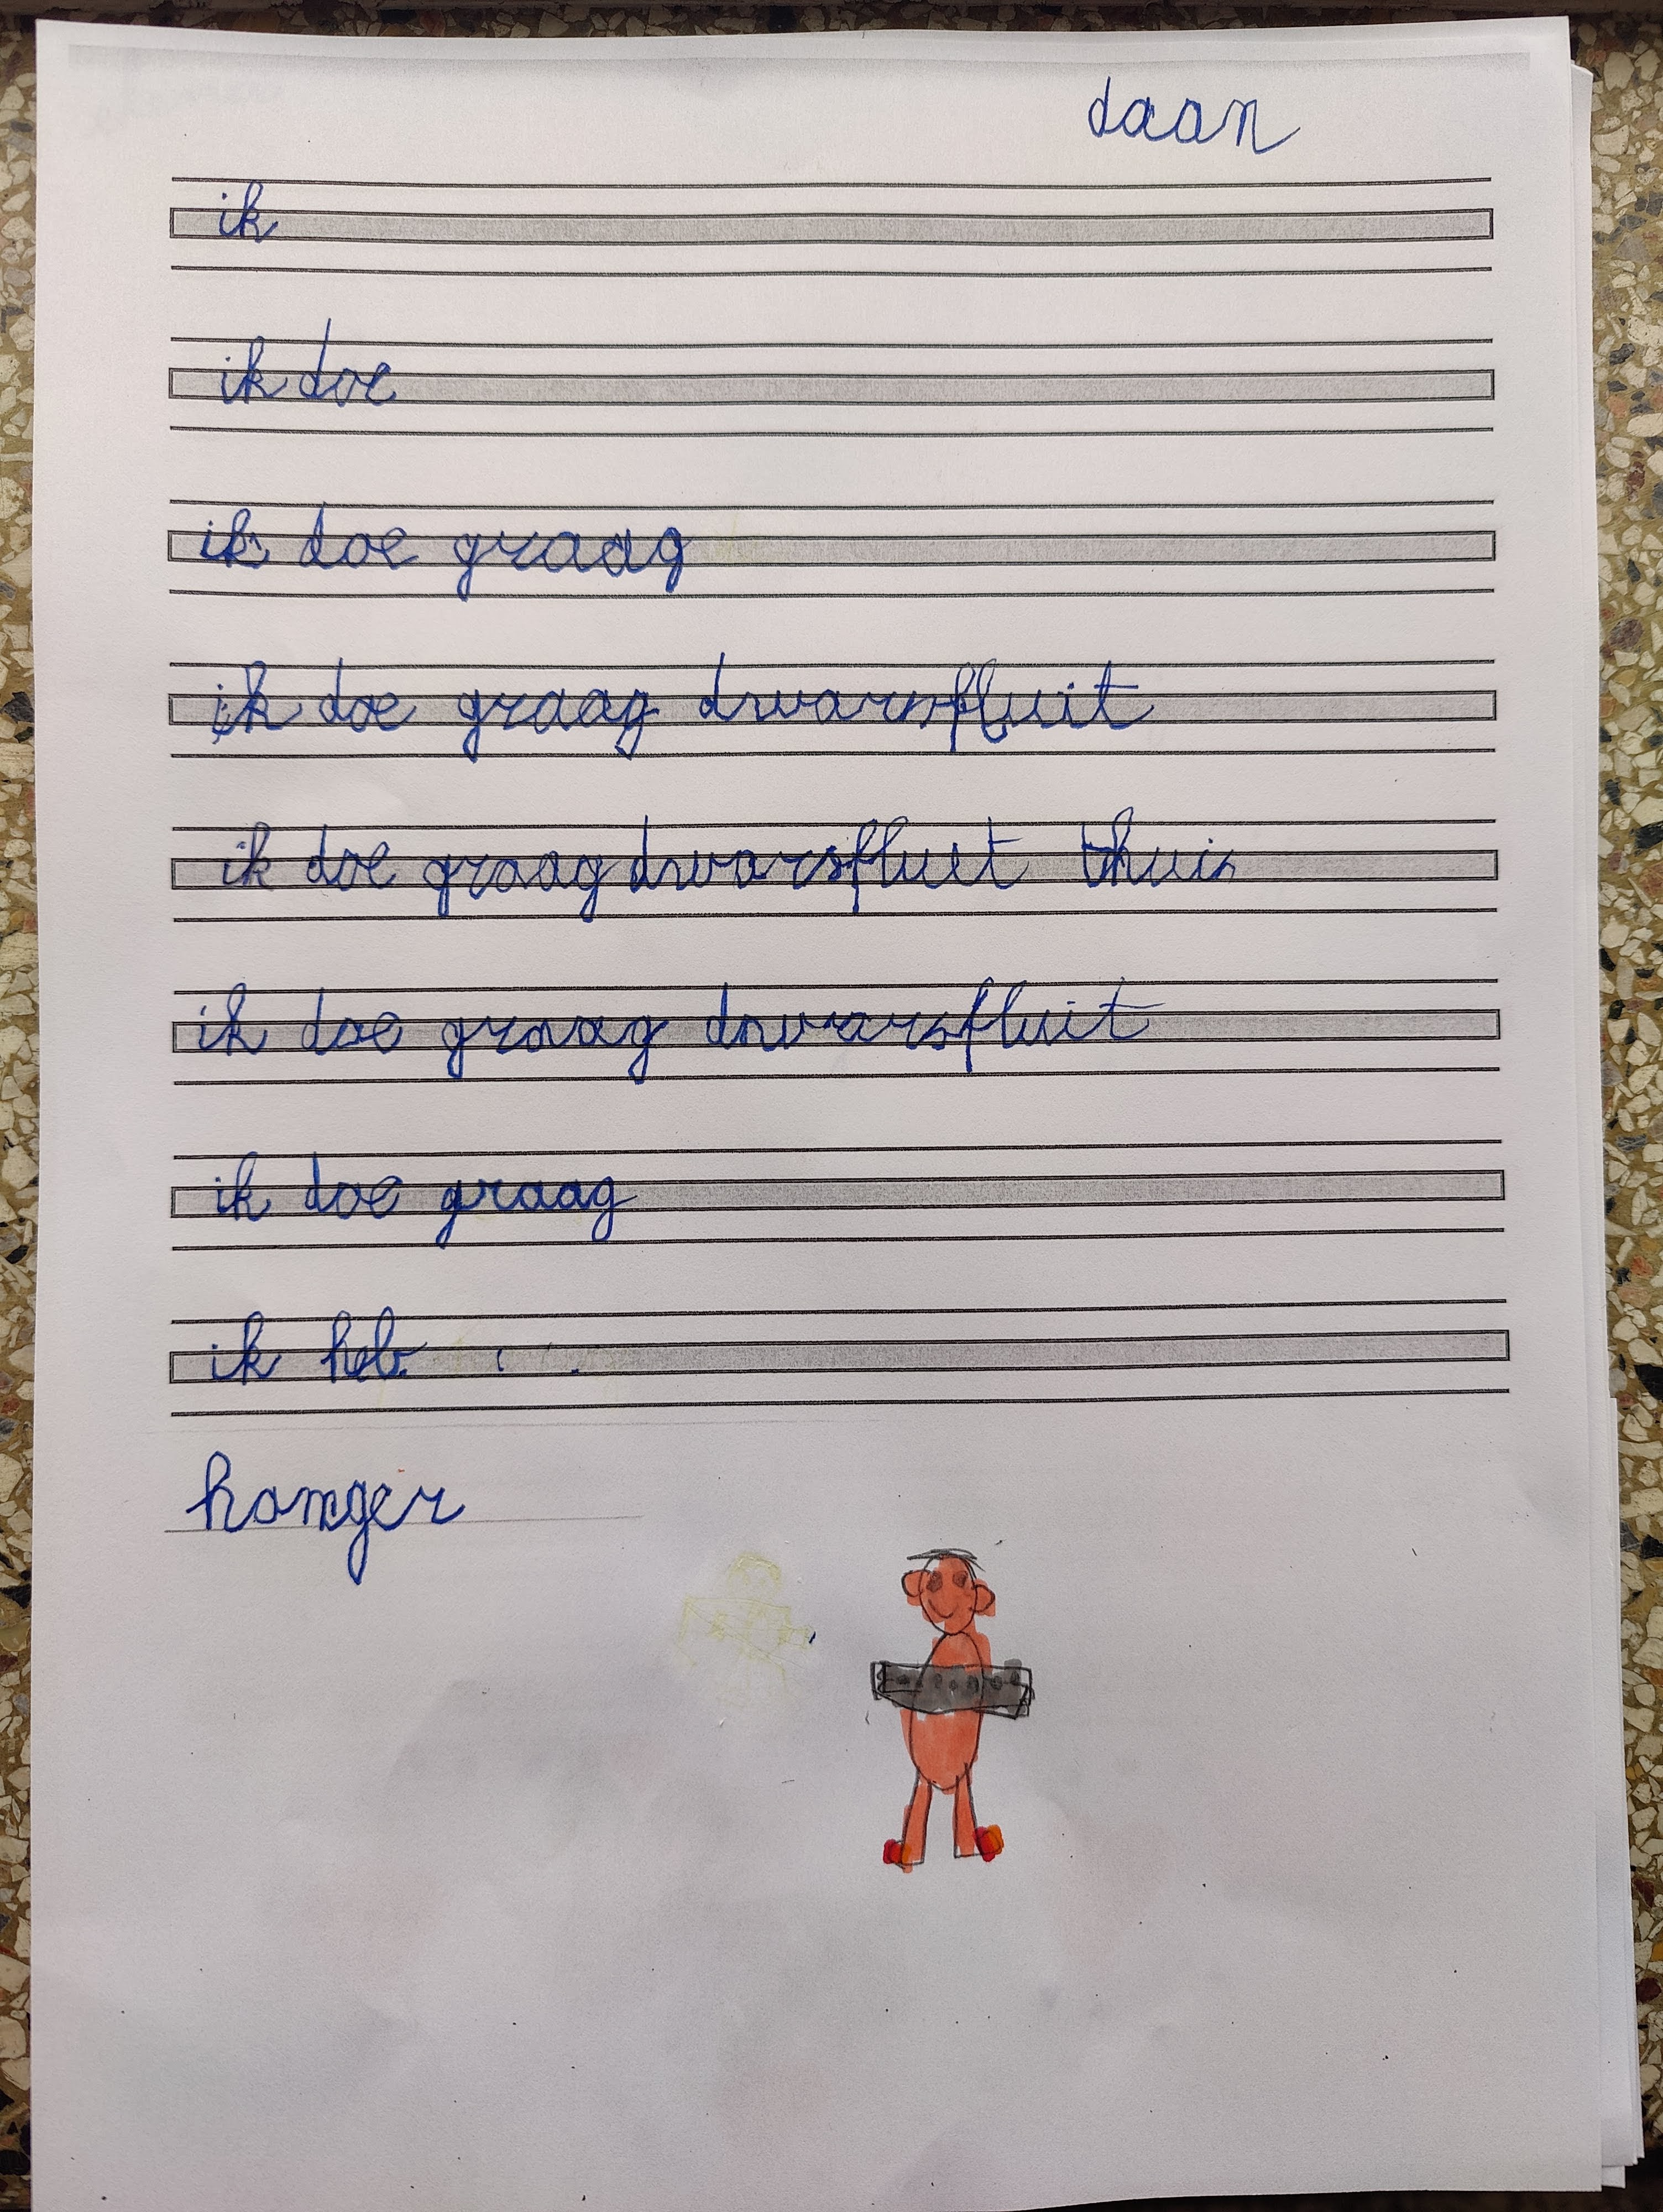 daan
ik
ik doe
ik doe graag
ik doe graag dwarsfluit
ik doe graag dwarsfluit thuis
ik doe graag dwarsfluit
ik doe graag
ik heb
honger